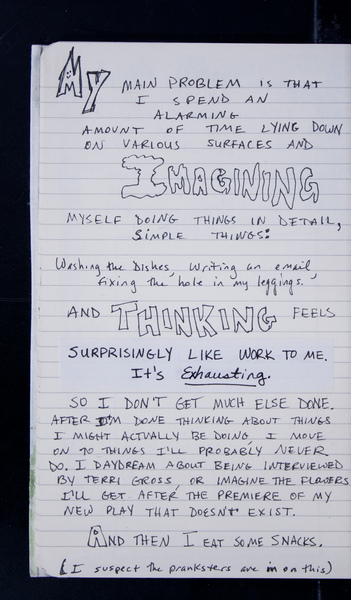 My MAIN PROBLEM IS THAT
I SPEND AN
ALARMING
AMOUNT OF TIME LYING DOWN
ON VARIOUS SURFACES AND
IMAGINING
MYSELF DOING THINGS IN DETAIL,
SIMPLE THINGS:
Washing the Dishes, Writing an email,
fixing the hole in my leggings.
AND THINKING FEELS
SURPRISINGLY LIKE WORK TO ME.
It's Exhausting.
SO I DON'T GET MUCH ELSE DONE.
AFTER I'M DONE THINKING ABOUT THINGS
I MIGHT ACTUALLY BE DOING, I MOVE
ON TO THINGS I'LL PROBABLY NEVER
DO. I DAYDREAM ABOUT BEING INTERVIEWED
BY TERRI GROSS, OR IMAGINE THE FLOWERS
I'LL GET AFTER THE PREMIERE OF MY
NEW PLAY THAT DOESN'T EXIST.
AND THEN I EAT SOME SNACKS.
(I suspect the pranksters are in on this)